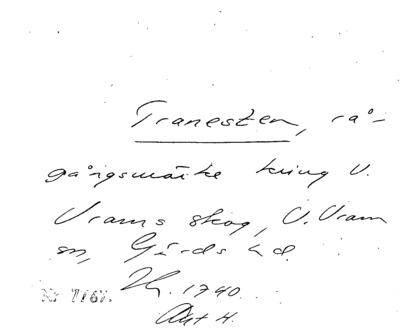 Tranesten, rå-
gångsmärke kring V.
Vrams skog, V. Vram
sn, Gärds hd.
1740.
Akt 4.
Nr 7/67.